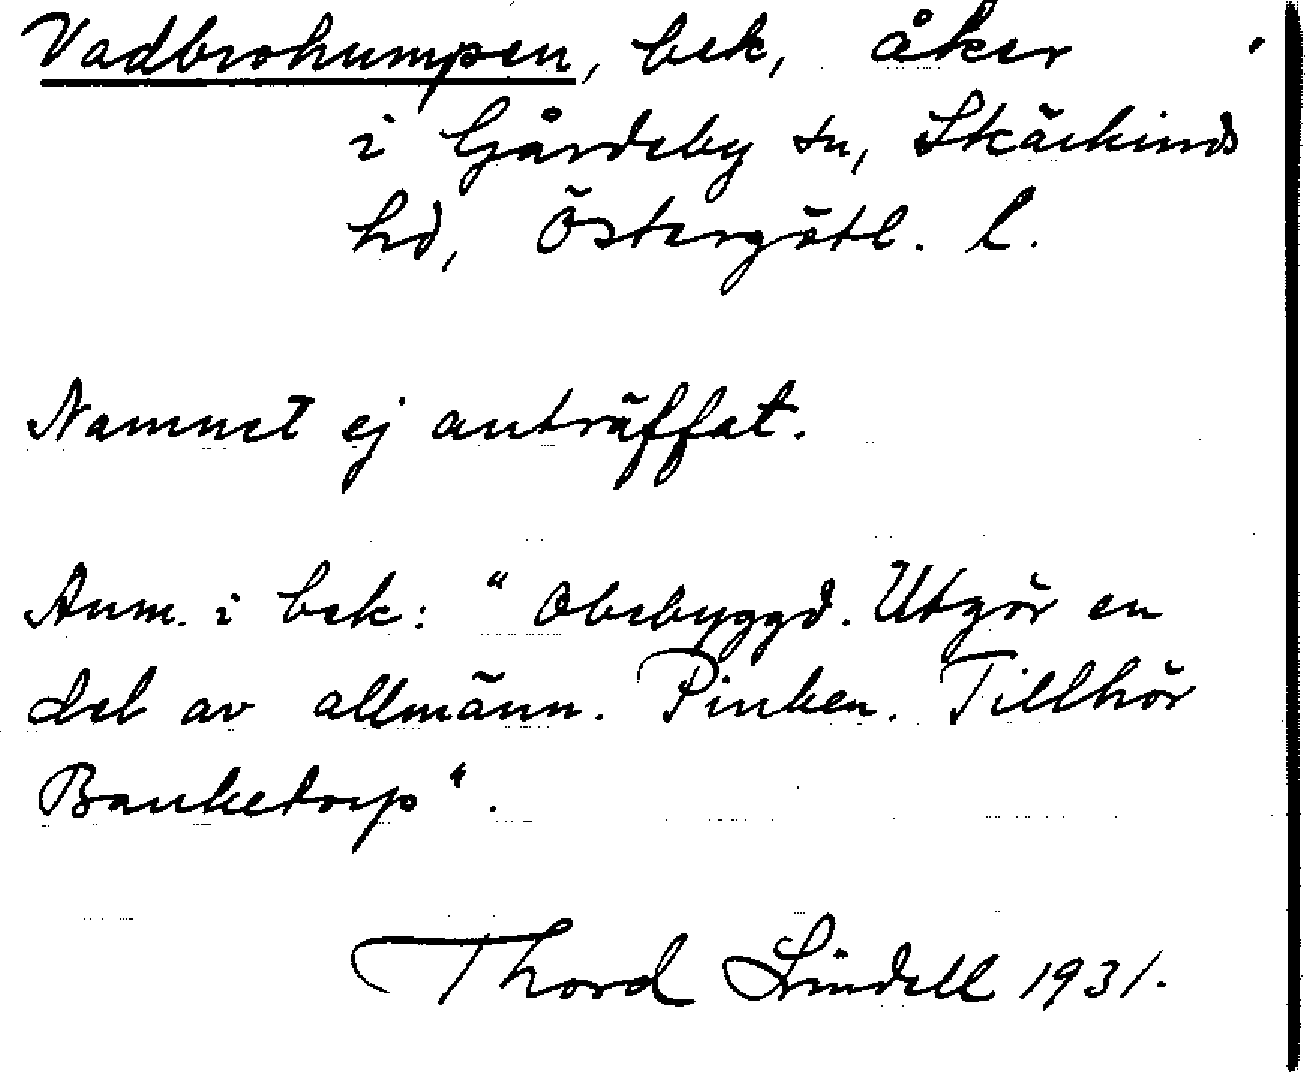 Vadbrohumpen, bek, åker
i Gårdeby sn, Skärkinds
hd, Östergötl. l.
Namnet ej anträffat.
Anm. i bek: "Obebyggd. Utgör en
del av allmänn. Pinken. Tillhör
Banketorp".
Thord Lindell 1931.